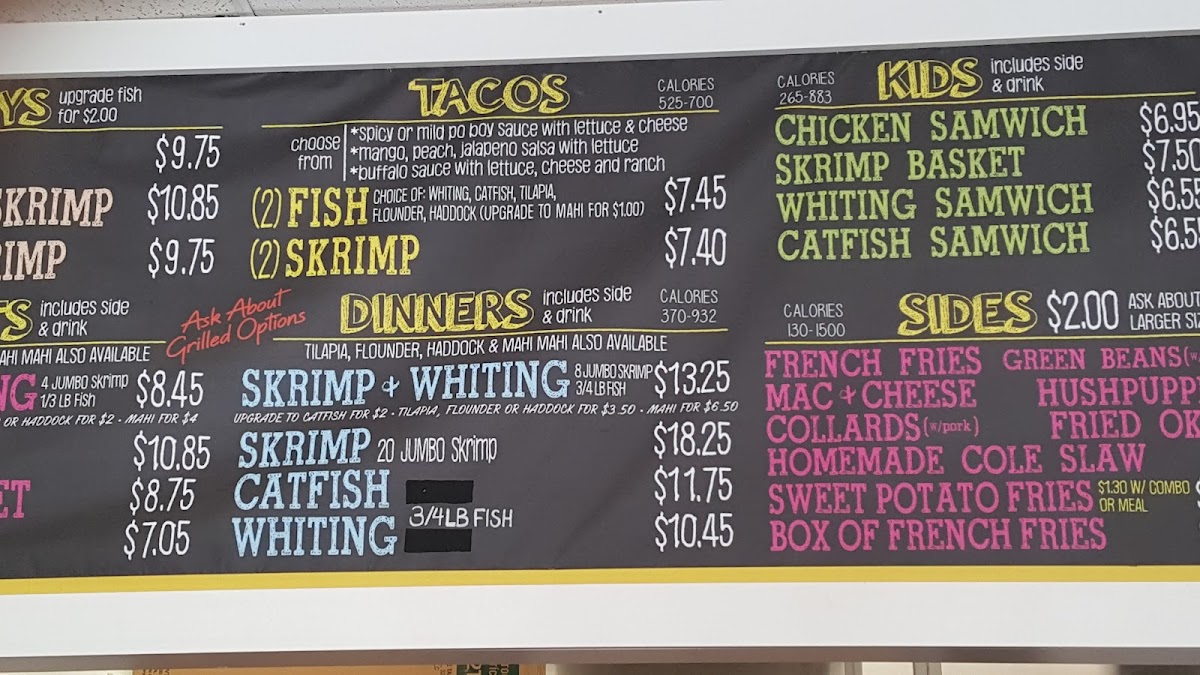 upgrade fish
for $2.00
$9.75
SKRIMP $10.85
$9.75
includes side
& drink
Ask About
Grilled Options
MAHI MAHI ALSO AVAILABLE
4 JUMBO skrimp
1/3 LB Fish
$8.45
OR HADDOCK FOR $2 - MAHI FOR $4
$10.85
$8.75
$7.05
TACOS
CALORIES
525-700
choose
from
*spicy or mild po boy sauce with lettuce & cheese
*mango, peach, jalapeno salsa with lettuce
*buffalo sauce with lettuce, cheese and ranch
(2) FISH CHOICE OF: WHITING, CATFISH, TILAPIA,
FLOUNDER, HADDOCK (UPGRADE TO MAHI FOR $1.00)
$7.45
(2) SKRIMP $7.40
DINNERS includes side
& drink
CALORIES
370-932
TILAPIA, FLOUNDER, HADDOCK & MAHI MAHI ALSO AVAILABLE
SKRIMP & WHITING 8 JUMBO SKRIMP
3/4 LB FISH
$13.25
UPGRADE TO CATFISH FOR $2 - TILAPIA, FLOUNDER OR HADDOCK FOR $3.50 - MAHI FOR $6.50
SKRIMP 20 JUMBO Skrimp $18.25
CATFISH $11.75
3/4LB FISH
WHITING $10.45
CALORIES
265-883
KIDS includes side
& drink
CHICKEN SAMWICH $6.95
SKRIMP BASKET $7.50
WHITING SAMWICH
CATFISH SAMWICH
CALORIES
130-1500
SIDES $2.00 ASK ABOUT
LARGER
FRENCH FRIES GREEN BEANS
MAC & CHEESE
COLLARDS (w/pork) FRIED
HOMEMADE COLE SLAW
SWEET POTATO FRIES $1.30 W/ COMBO
OR MEAL
BOX OF FRENCH FRIES